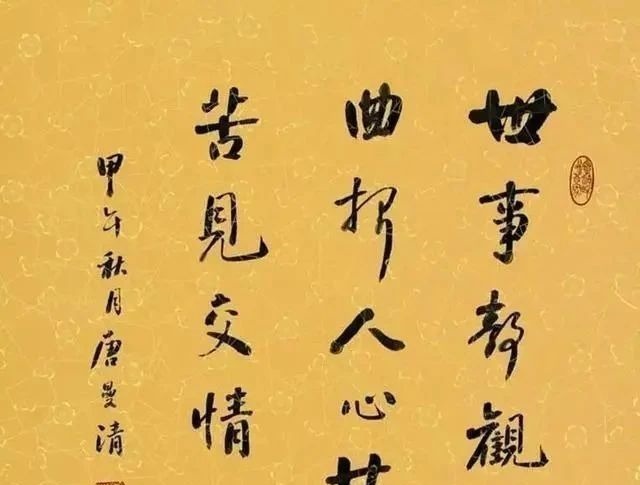 世事静觀
曲折人心
苦見交情
甲午秋月唐曼清